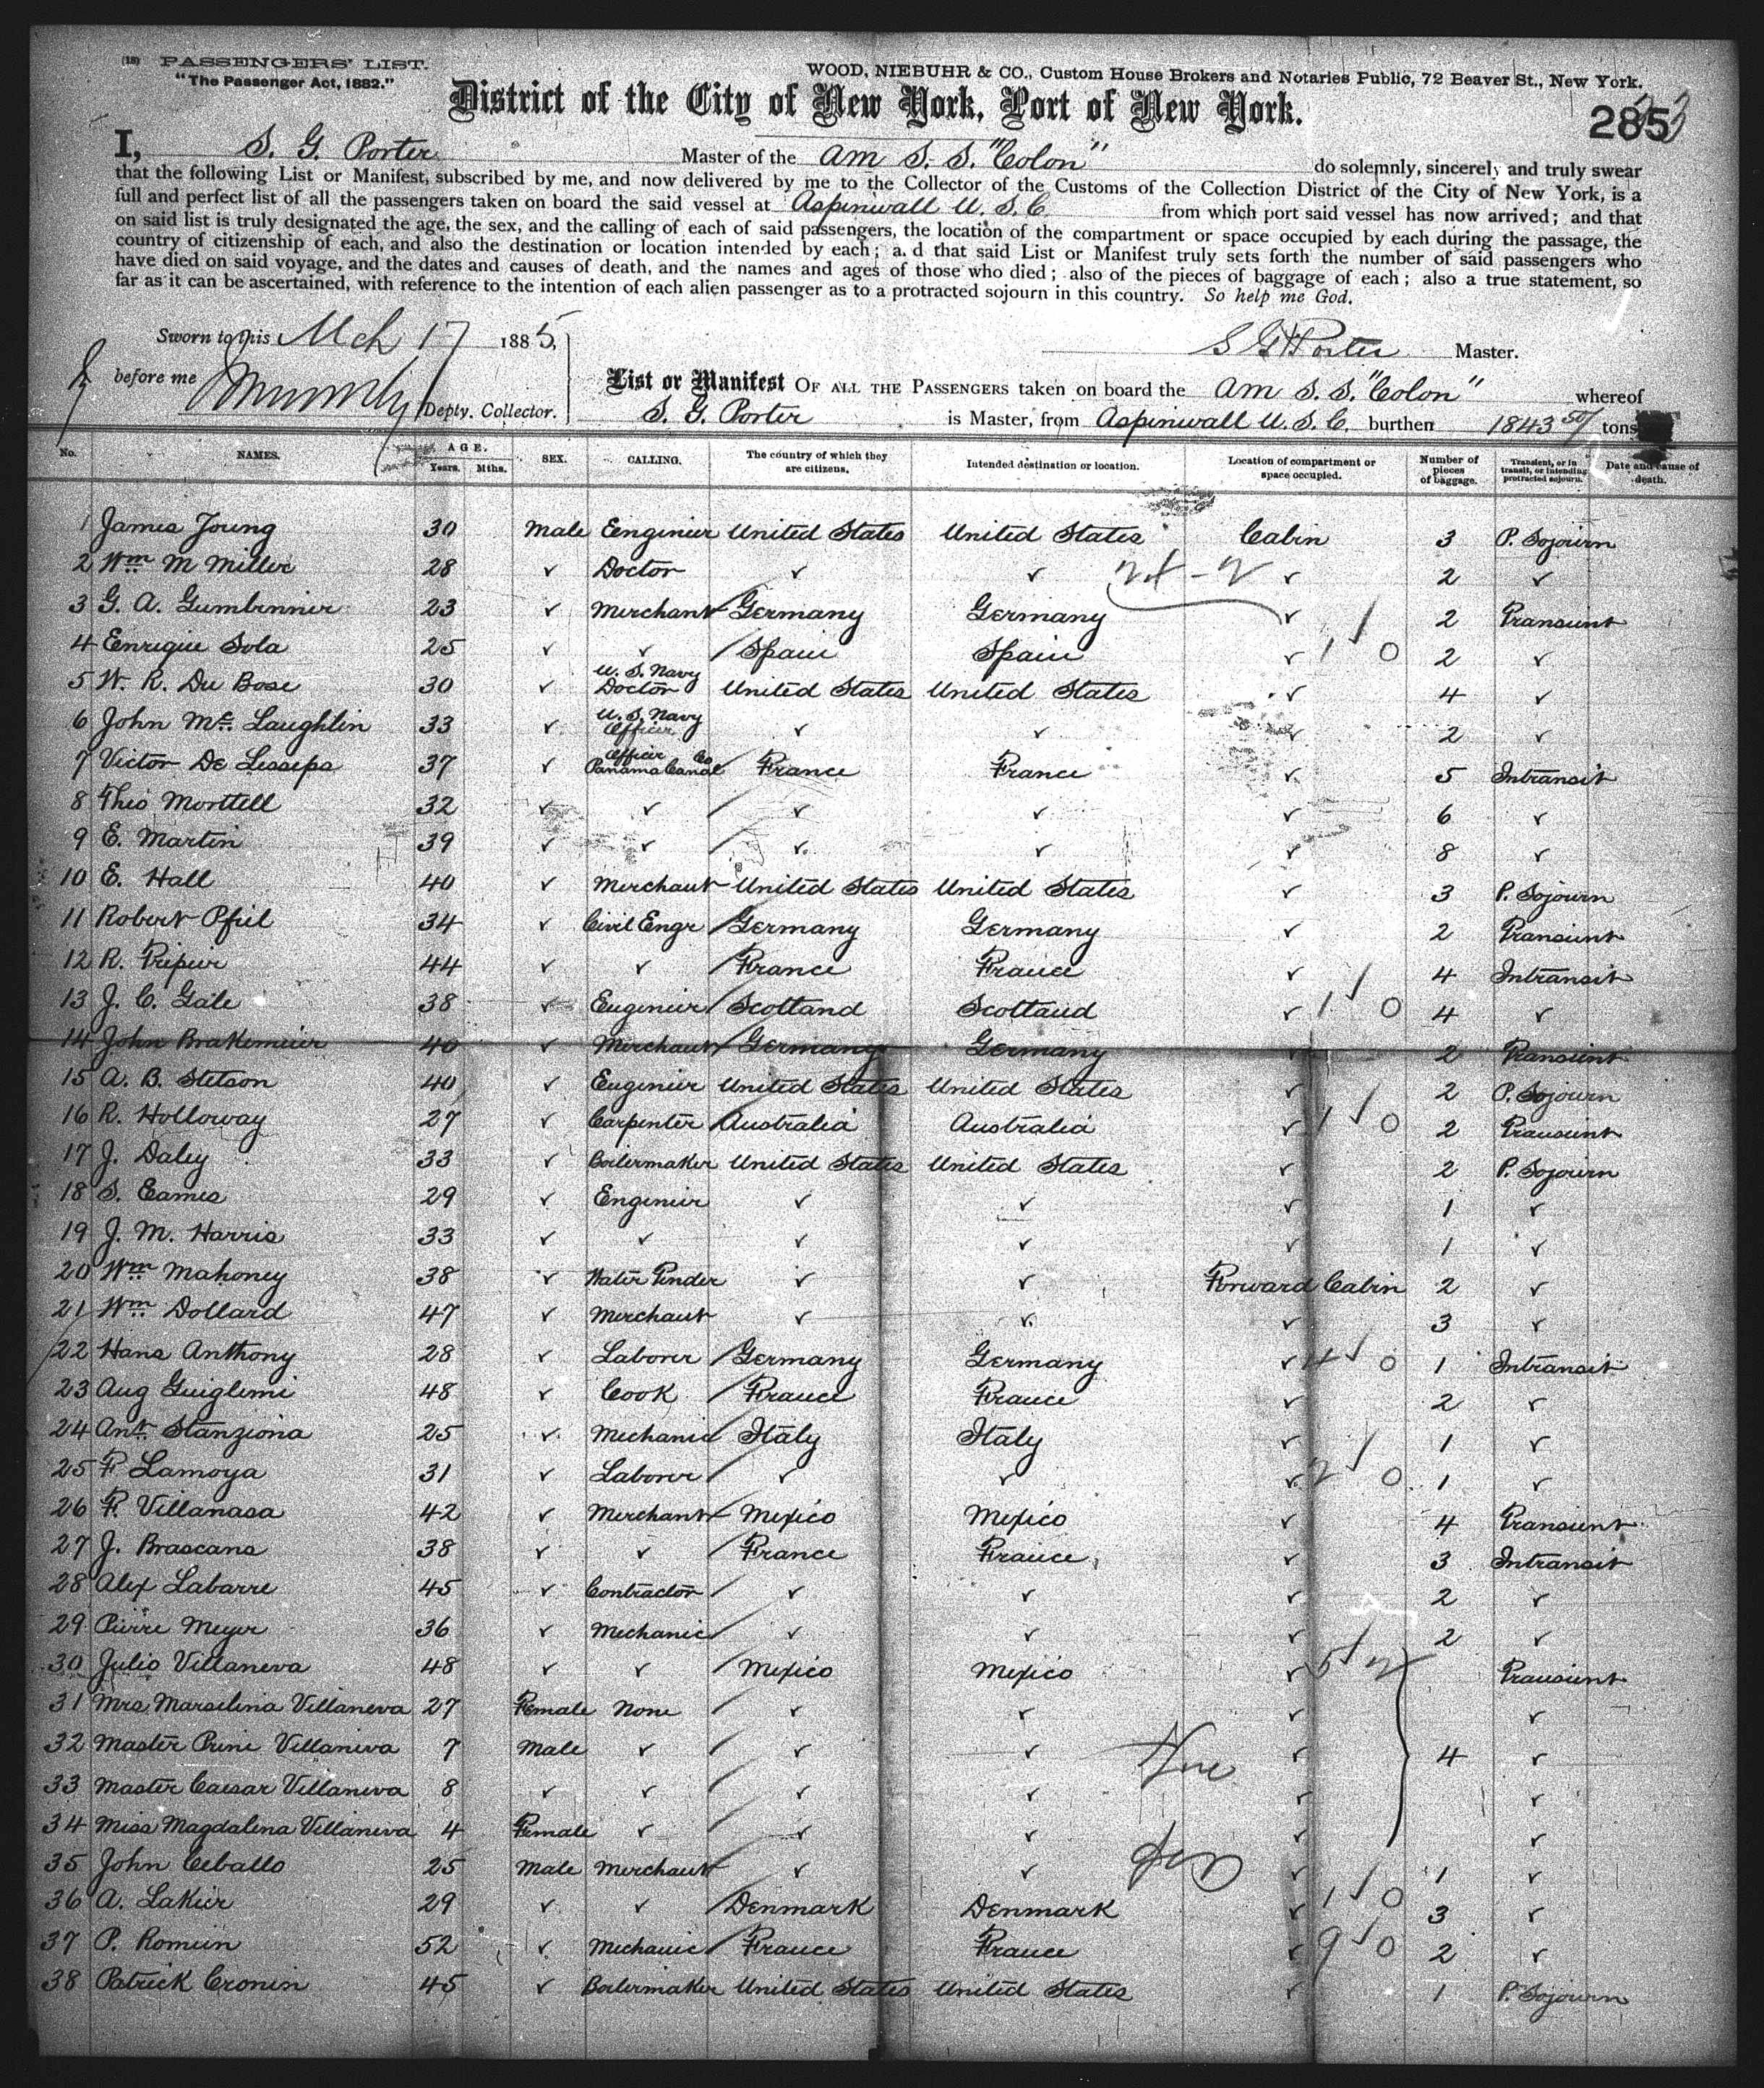 (18) PASSENGERS' LIST.
"The Passenger Act, 1882."
WOOD, NIEBUHR & CO., Custom House Brokers and Notaries Public, 72 Beaver St., New York.
District of the City of New York, Port of New York.
285
I, S. G. Porter Master of the Am S. S. "Colon" do solemnly, sincerely and truly swear
that the following List or Manifest, subscribed by me, and now delivered by me to the Collector of the Customs of the Collection District of the City of New York, is a
full and perfect list of all the passengers taken on board the said vessel at Aspinwall U. S. C. from which port said vessel has now arrived; and that
on said list is truly designated the age, the sex, and the calling of each of said passengers, the location of the compartment or space occupied by each during the passage, the
country of citizenship of each, and also the destination or location intended by each; a.d that said List or Manifest truly sets forth the number of said passengers who
have died on said voyage, and the dates and causes of death, and the names and ages of those who died; also of the pieces of baggage of each; also a true statement, so
far as it can be ascertained, with reference to the intention of each alien passenger as to a protracted sojourn in this country. So help me God.
Sworn to this Mch 17 1885,
S G Porter Master.
before me Deply. Collector.
List or Manifest OF ALL THE PASSENGERS taken on board the Am S. S. "Colon" whereof
S. G. Porter is Master, from Aspinwall U. S. C. burthen 1843 50/ tons
No. NAMES. AGE. Years. Mths. SEX. CALLING. The country of which they are citizens. Intended destination or location. Location of compartment or space occupied. Number of pieces of baggage. Transient, or in transit, or intending protracted sojourn. Date and cause of death.
1 James Young 30 Male Engineer United States United States Cabin 3 P. Sojourn
2 Wm M Miller 28 ✓ Doctor ✓ ✓ ✓ 2 ✓
3 G. A. Gumbinner 23 ✓ Merchant Germany Germany ✓ 2 Transient
4 Enrique Sola 25 ✓ ✓ Spain Spain ✓ 1 0 2 ✓
5 W. R. Du Bose 30 ✓ U. S. Navy Doctor United States United States ✓ 4 ✓
6 John Mc Laughlin 33 ✓ U. S. Navy Officer ✓ ✓ ✓ 2 ✓
7 Victor De Lesseps 37 ✓ Officer Panama Canal Co France France ✓ 5 Intransit
8 Theo Morttell 32 ✓ ✓ ✓ ✓ ✓ 6 ✓
9 E. Martin 39 ✓ ✓ ✓ ✓ ✓ 8 ✓
10 E. Hall 40 ✓ Merchant United States United States ✓ 3 P. Sojourn
11 Robert Pfiel 34 ✓ Civil Engr Germany Germany ✓ 2 Transient
12 R. 44 ✓ ✓ France France ✓ 4 Intransit
13 J. C. Gale 38 ✓ Engineer Scotland Scotland ✓ 1 0 4 ✓
14 John Brakemeier 40 ✓ Merchant Germany Germany ✓ 2 Transient
15 A. B. Stetson 40 ✓ Engineer United States United States ✓ 2 P. Sojourn
16 R. Holloway 27 ✓ Carpenter Australia Australia ✓ 1 0 2 Transient
17 J. Daley 33 ✓ Boilermaker United States United States ✓ 2 P. Sojourn
18 S. Eames 29 ✓ Engineer ✓ ✓ ✓ 1 ✓
19 J. M. Harris 33 ✓ ✓ ✓ ✓ ✓ 1 ✓
20 Wm Mahoney 38 ✓ Water Tender ✓ ✓ Forward Cabin 2 ✓
21 Wm Dollard 47 ✓ Merchant ✓ ✓ ✓ 3 ✓
22 Hans Anthony 28 ✓ Laborer Germany Germany ✓ 4 0 1 Intransit
23 Aug Guiglemi 48 ✓ Cook France France ✓ 2 ✓
24 Ant. Stanziona 25 ✓ Mechanic Italy Italy ✓ 1 ✓
25 F Lamoya 31 ✓ Laborer ✓ ✓ ✓ 2 0 1 ✓
26 F. Villanasa 42 ✓ Merchant Mexico Mexico ✓ 4 Transient
27 J. Brascans 38 ✓ ✓ France France ✓ 3 Intransit
28 Alex Labarre 45 ✓ Contractor ✓ ✓ ✓ 2 ✓
29 Pierre Meyer 36 ✓ Mechanic ✓ ✓ ✓ 2 ✓
30 Julio Villaneva 48 ✓ ✓ Mexico Mexico ✓ 5 2 Transient
31 Mrs Marselina Villaneva 27 Female None ✓ ✓ ✓ ✓
32 Master Prini Villaneva 7 Male ✓ ✓ ✓ ✓ 4 ✓
33 Master Caesar Villaneva 8 ✓ ✓ ✓ ✓ ✓ ✓
34 Miss Magdalena Villaneva 4 Female ✓ ✓ ✓ ✓ ✓
35 John Ceballo 25 Male Merchant ✓ ✓ ✓ 1 ✓
36 A. Lakier 29 ✓ ✓ Denmark Denmark ✓ 1 0 3 ✓
37 P. Romein 52 ✓ Mechanic France France ✓ 9 0 2 ✓
38 Patrick Cronin 45 ✓ Boilermaker United States United States ✓ 1 P. Sojourn